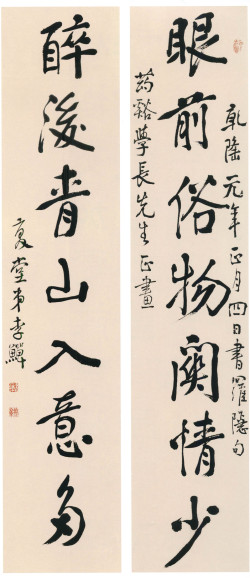 眼前俗物関情少
乾隆元年正月四日書羅隱句
茑谿學長先生正畫
醉後青山入意多
復堂弟李鱓